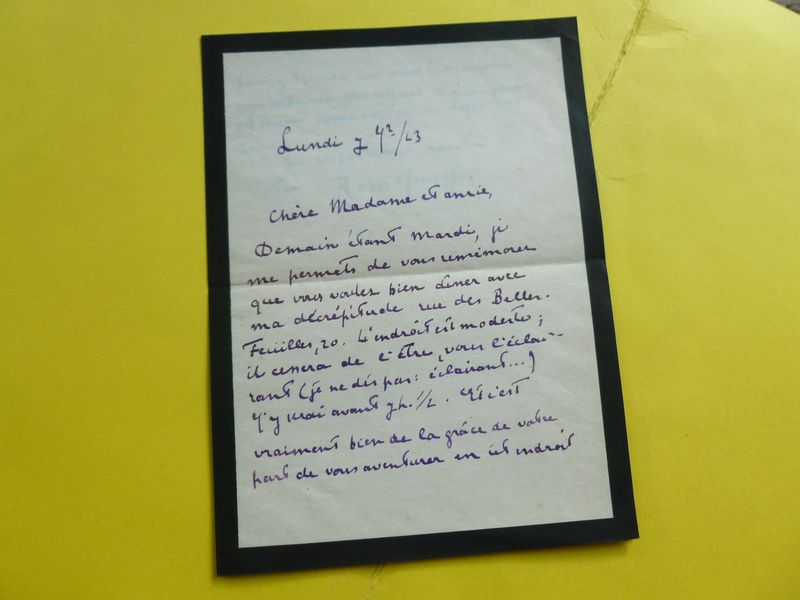 Lundi 7
Chère Madame et amie,
Demain étant Mardi, je
me permets de vous remémorer
que vous voulez bien dîner avec
ma décrépitude rue des Belles-
Feuilles, 20. L'endroit est modeste;
il cessera de l'être, vous l'éclai-
rant (je ne dis pas: éclairant...)
J'y serai avant 7h. 1/2. Et c'est
vraiment bien de la grâce de votre
part de vous aventurer en cet endroit